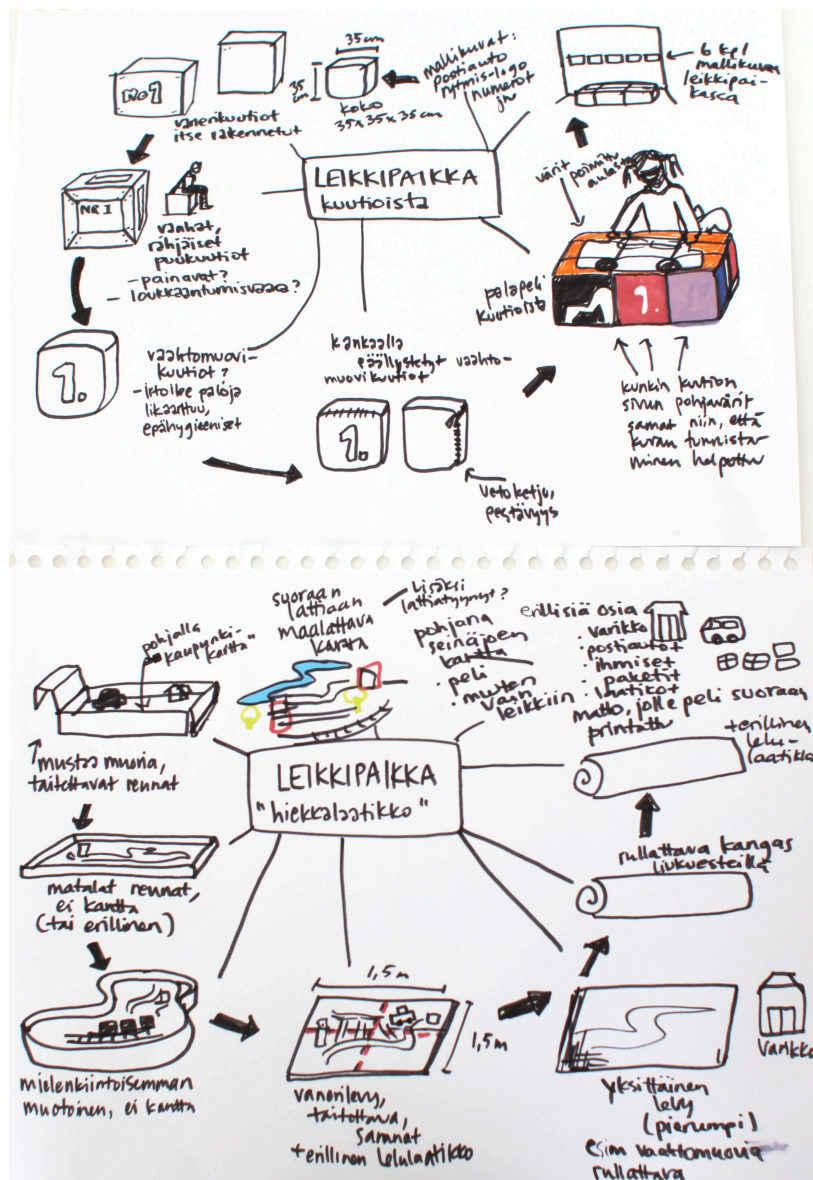 No 1
vanerikuutiot
itse rakennetut
35 cm
35 cm
koko
35 x 35 x 35 cm
mallikuvat:
postiauto
rytmis-logo
numerot
jne
6 kpl
mallikuvaa
leikkipai-
kassa
LEIKKIPAIKKA
kuutioista
NR 1
vanhat,
rähjäiset
puukuutiot
- painavat?
- loukkaantumisvaara?
värit poimittu
aulasta
palapeli
kuutioista
1.
kunkin kuution
sivun pohjavärit
samat niin, että
kuvan tunnista-
minen helpottuu
1.
vaahtomuovi-
kuutiot?
- irtoilee paloja
likaantuu,
epähygieeniset
kankaalla
päällystetyt vaahto-
muovikuutiot
1.
vetoketju,
pestävyys
pohjalla
"kaupunki-
kartta"
mustaa muovia,
taitettavat reunat
suoraan
lattiaan
maalattava
kartta
Lisäksi
lattiatyynyt?
pohjana
seinäjoen
kartta
• peli
• muuten
vain
leikkiin
erillisiä osia
• varikko
• postiautot
• ihmiset
• paketit
• laatikot
matto, jolle peli suoraan
printattu
+ erillinen
lelu-
laatikko
LEIKKIPAIKKA
"hiekkalaatikko"
matalat reunat,
ei kantta
(tai erillinen)
rullattava kangas
liukuesteillä
mielenkiintoisemman
muotoinen, ei kantta
1,5 m
1,5 m
vanerilevy,
taitettava,
saranat
+ erillinen lelulaatikko
varikko
yksittäinen
levy
(pienempi)
esim vaahtomuovia
rullattava